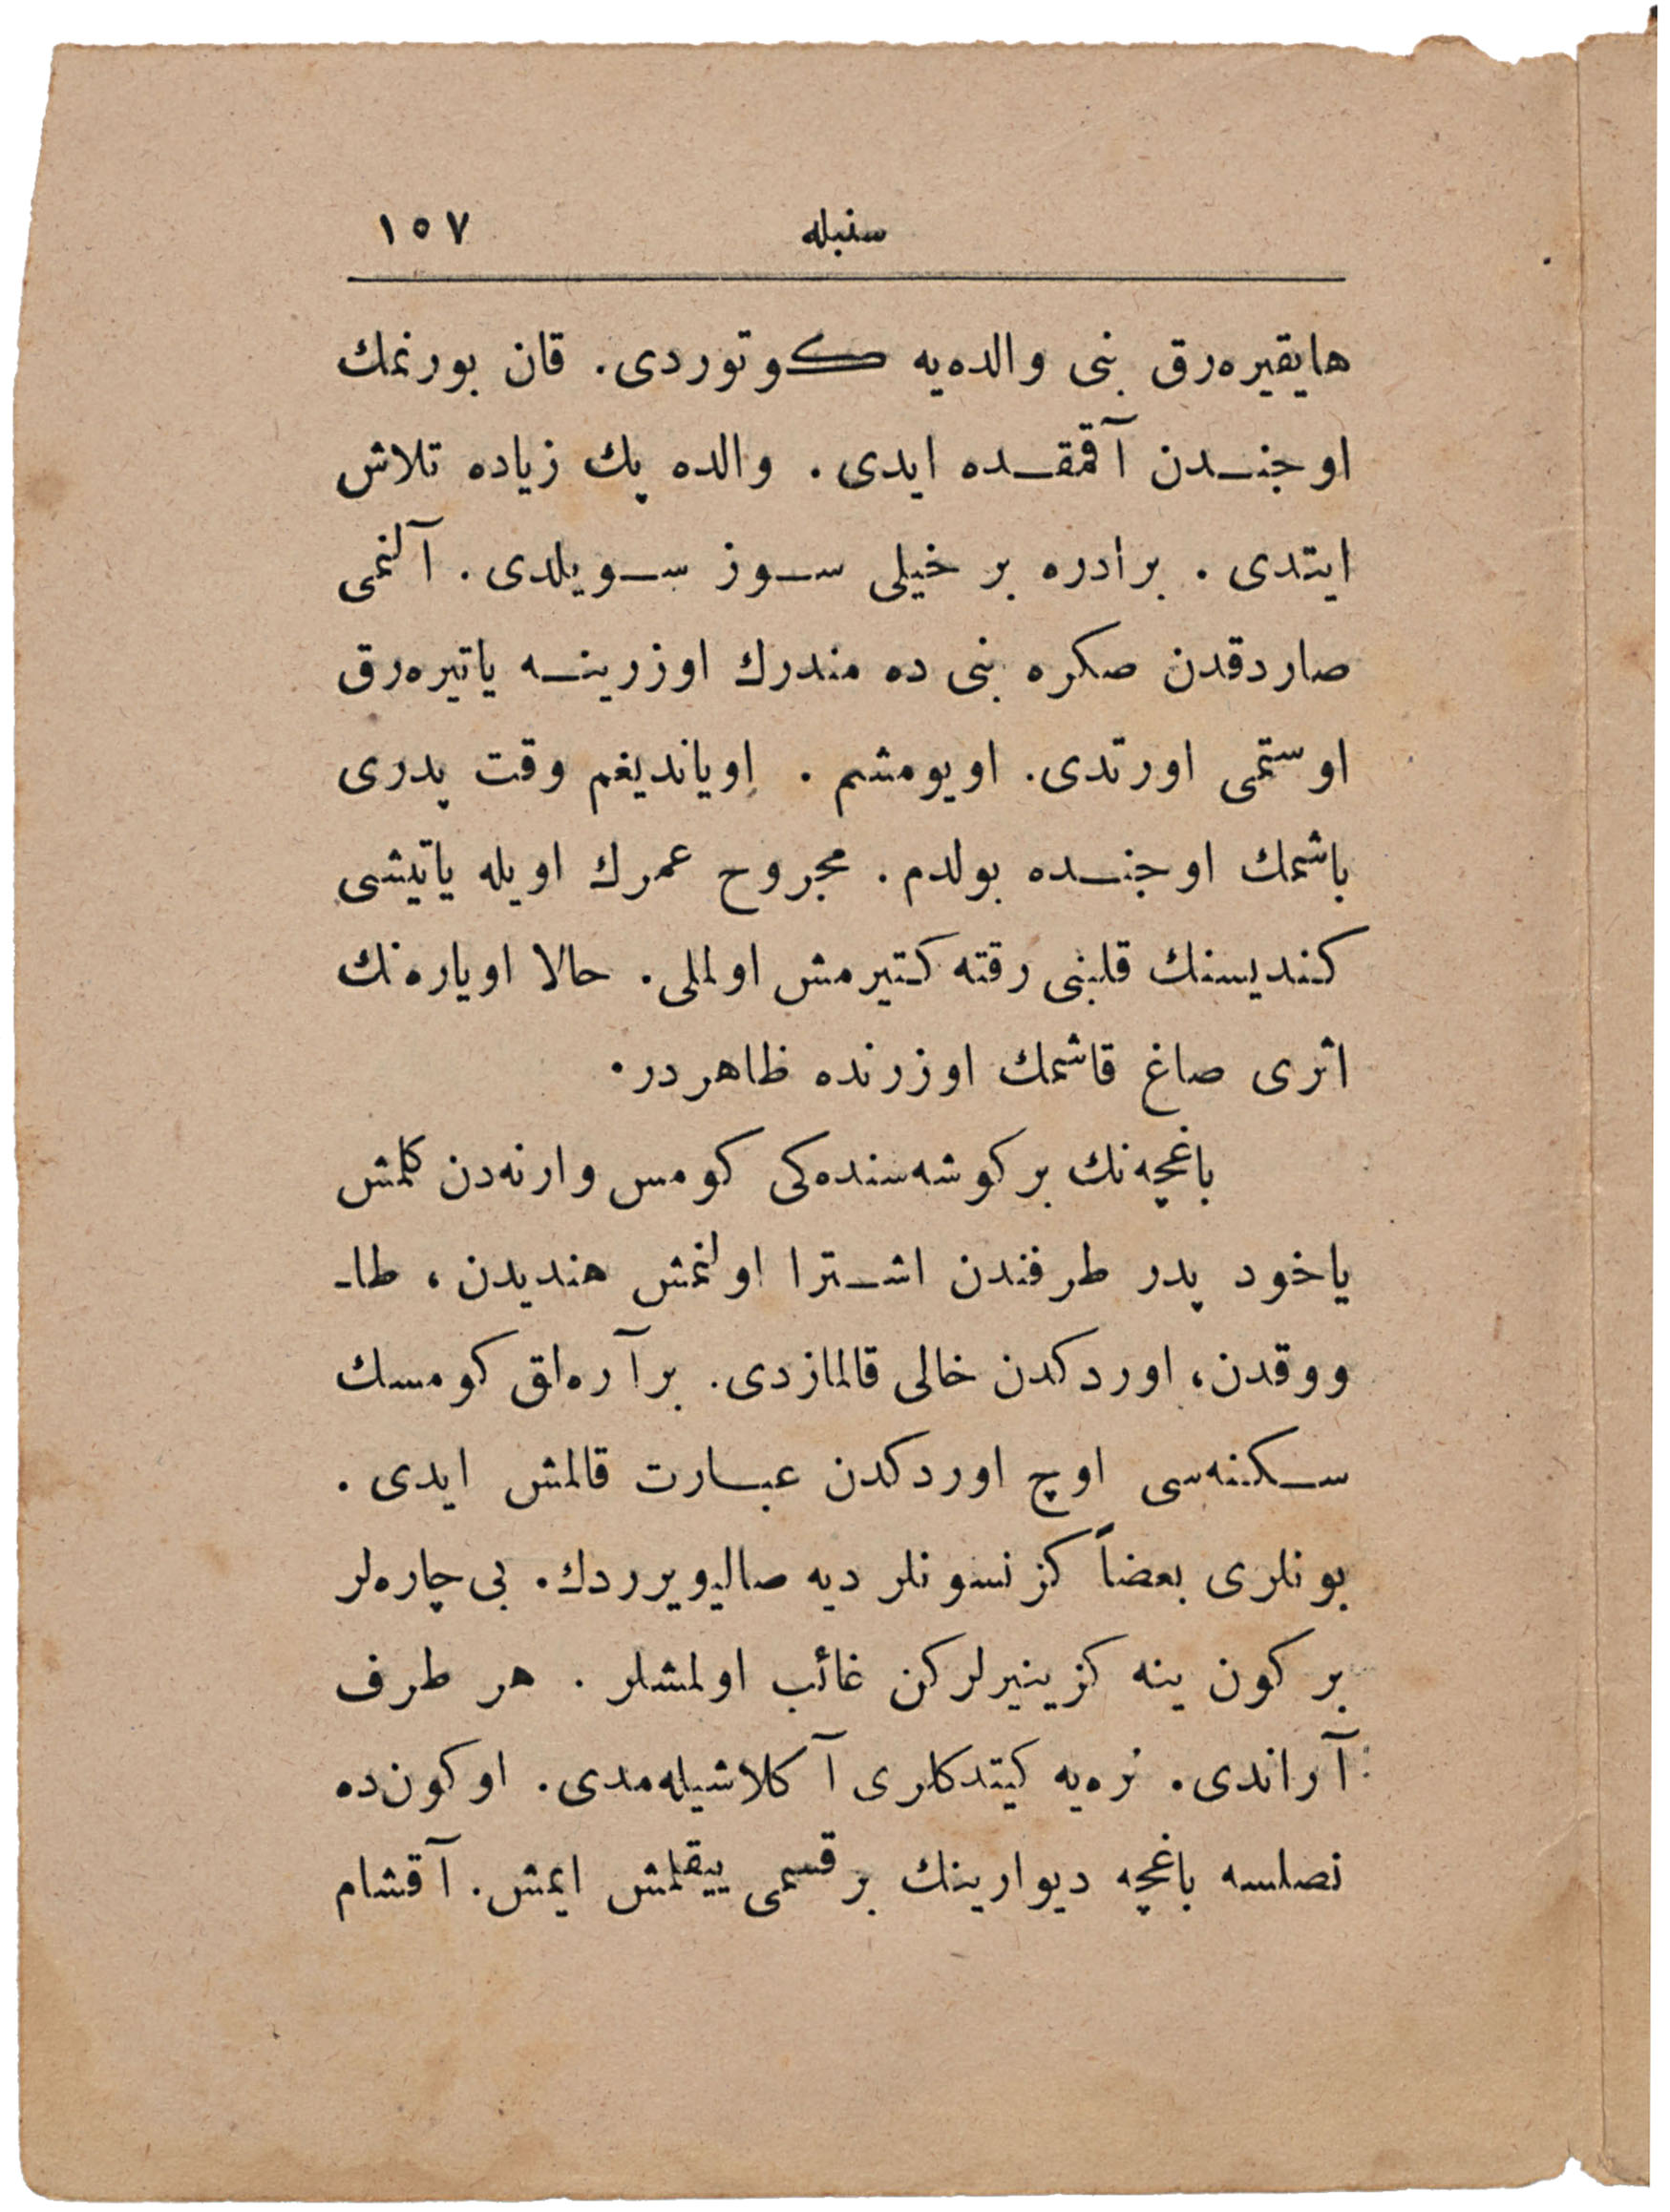 سنبله ١٥٧
هایقیره‌رق بنی والده‌یه کوتوردی. قان بورنمك
اوجندن آقمقده ایدی. والده پك زیاده تلاش
ایتدی. برادره بر خیلی سوز سویلدی. آلنمی
صاردقدن صکره بنی ده مندرك اوزرینه یاتیره‌رق
اوستمی اورتدی. اویومشم. اویاندیغم وقت پدری
باشمك اوجنده بولدم. مجروح عمرك اویله یاتیشی
کندیسنك قلبنی رقته کتیرمش اولملی. حالا اویاره‌نك
اثری صاغ قاشمك اوزرنده ظاهردر.
باغچه‌نك بر کوشه‌سنده‌کی کومس وارنه‌دن کلمش
یاخود پدر طرفندن اشترا اولنمش هندیدن، طا-
ووقدن، اوردکدن خالی قالمازدی. بر آره‌لق کومسك
سکنه‌سی اوچ اوردکدن عبارت قالمش ایدی.
بونلری بعضاً کزنسونلر دیه صالیویرردك. بی‌چاره‌لر
بر کون ینه کزینیرلرکن غائب اولمشلر. هر طرف
آراندی. نره‌یه کیتدکلری آکلاشیله‌مدی. او کون‌ده
نصلسه باغچه دیوارینك بر قسمی ییقلمش ایمش. آقشام